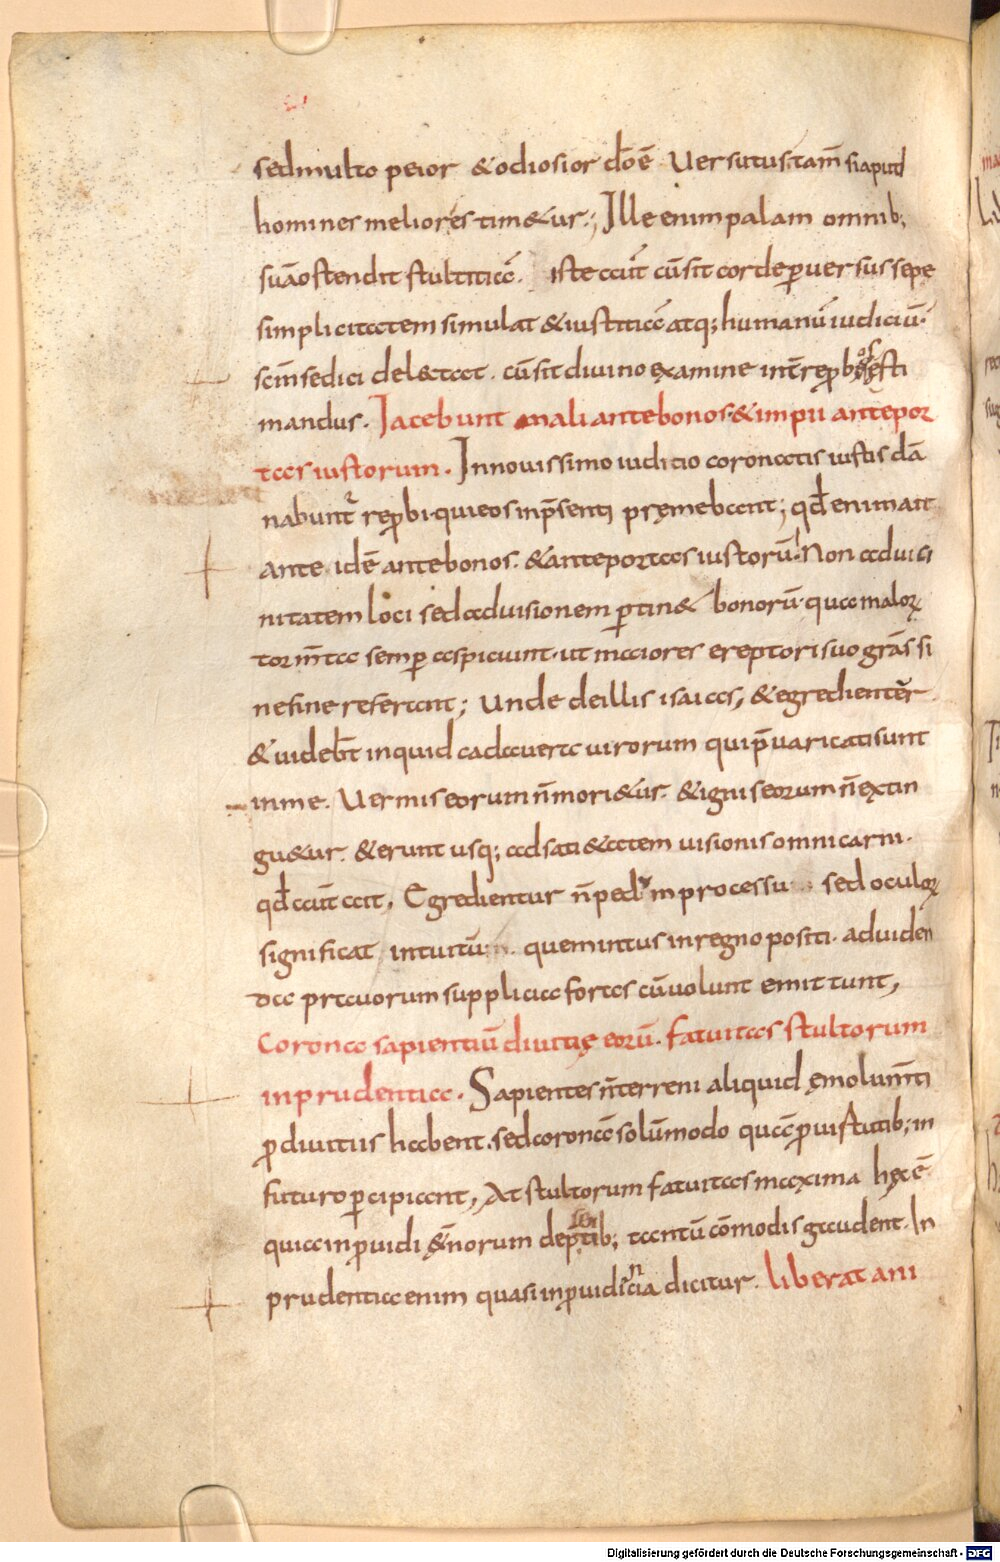 sed multo peior & odiosior dō ē Uersutus tam̄ si apud
homines melior ēstim&ur; Ille enim palam omnib;
suā ostendit stultitiā. iste aut̄ cū sit corde ꝑuersus sepe
simplicitatem simulat & iustitiā atq; humanū iudiciū
scm̄ se dici delectat. cū sit divino exęamine int̄ reꝓbos ęsti
mandus. Iacebunt mali ante bonos. & impii ante por
tas iustorum. In novissimo iudicio coronatis iustis dā
nabunt̄ reꝓbi qui eos in p̄senti pręmebant; qđ enim ait
ante idē ante bonos. & ante portas iustorū. Non ad uici
nitatem loci sed ad uisionem ꝑtin& bonorū. quae maloꝝ
torm̄ta semꝑ aspiciunt. ut maiores ereptori suo grās si
ne fine referant; Unde de illis isaias, & egredientēr
& uideb̄t inquid cadauera uirorum qui p̄uaricati sunt
in me. Uermis eorum n̄ mori&ur. & ignis eorum n̄ extin
gu&ur. & erunt usq; ad sati&atem uisionis omni carni.
qđ aut̄ ait, Egredientur n̄ pedū processu sed oculoꝝ
significat intuitū. quem intus in regno positi. ad uiden
da prauorum supplicia foras cū uolunt emittunt,
Corona sapientiū diuitię eorū. fatuitas stultorum
inprudentia. Sapientes n̄ terreni aliquid ęmolum̄ti
ꝓ diuitiis habent. sed coronā solūmodo quā ꝓ uirtutib; in
futuro ꝑcipiant, At stultorum fatuitas maxima hęc ē
quia inꝓuidi &̄norum de p̄sentib; tantū cōmodis gaudent. In
prudentia enim quasi inꝓuidentia dicitur. liberat ani